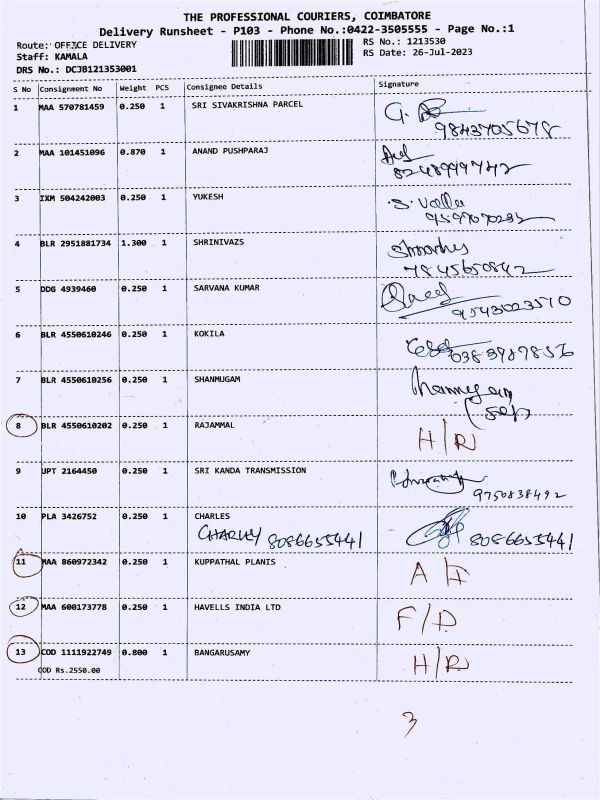 THE PROFESSIONAL COURIERS, COIMBATORE
Delivery Runsheet - P103 - Phone No.:0422-3505555 - Page No.:1
Route: OFFICE DELIVERY
RS No.: 1213530
Staff: KAMALA
RS Date: 26-Jul-2023
DRS No.: DCJB121353001
S No Consignment No Weight PCS Consignee Details Signature
1 MAA 570781459 0.250 1 SRI SIVAKRISHNA PARCEL
9843705678
2 MAA 101451096 0.870 1 ANAND PUSHPARAJ
8248999742
3 IXM 504242003 0.250 1 YUKESH
4 BLR 2951881734 1.300 1 SHRINIVAZS
7845650842
5 DDG 4939460 0.250 1 SARVANA KUMAR
9543023570
6 BLR 4550610246 0.250 1 KOKILA
7 BLR 4550610256 0.250 1 SHANMUGAM
8 BLR 4550610202 0.250 1 RAJAMMAL H/R
9 JPT 2164450 0.250 1 SRI KANDA TRANSMISSION
9750838492
10 PLA 3426752 0.250 1 CHARLES
8086655441 8086655441
11 MAA 860972342 0.250 1 KUPPATHAL PLANIS
12 MAA 600173778 0.250 1 HAVELLS INDIA LTD F/D
13 COD 1111922749 0.800 1 BANGARUSAMY H/R
COD Rs.2550.00
3